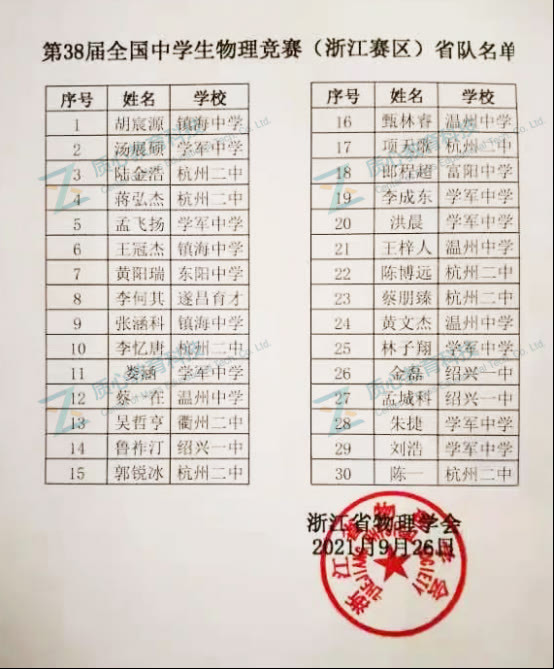 第38届全国中学生物理竞赛（浙江赛区）省队名单
序号 姓名 学校
1 胡宸源 镇海中学
2 汤展硕 学军中学
3 陆金浩 杭州二中
4 蒋弘杰 杭州二中
5 孟飞扬 学军中学
6 王冠杰 镇海中学
7 黄阳瑞 东阳中学
8 李何其 遂昌育才
9 张涵科 镇海中学
10 李忆唐 杭州二中
11 娄涵 学军中学
12 蔡一在 温州中学
13 吴哲亨 衢州二中
14 鲁祚汀 绍兴一中
15 郭锐冰 杭州二中
序号 姓名 学校
16 甄林睿 温州中学
17 项天歌 杭州二中
18 郎程超 富阳中学
19 李成东 学军中学
20 洪晨 学军中学
21 王梓人 温州中学
22 陈博远 杭州二中
23 蔡朋臻 杭州二中
24 黄文杰 温州中学
25 林子翔 学军中学
26 金磊 绍兴一中
27 孟城科 绍兴一中
28 朱捷 学军中学
29 刘浩 学军中学
30 陈一 杭州二中
浙江省物理学会
2021年9月26日
浙江省物理学会
ZHEJIANG PHYSICAL SOCIETY
质心教育科技